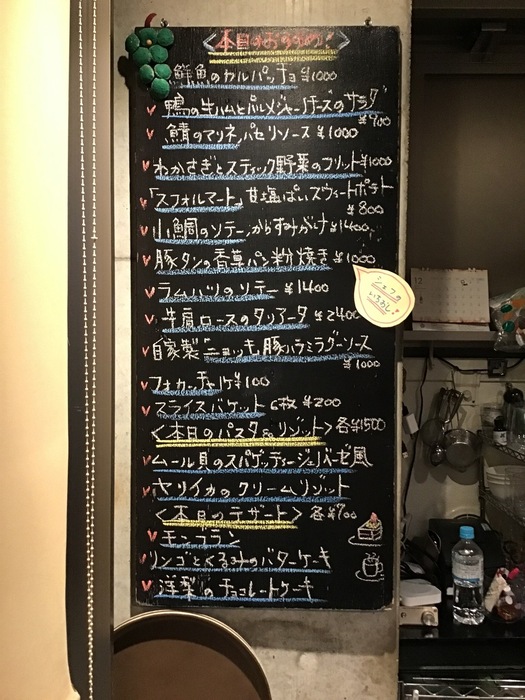 本日のおすすめ!
鮮魚のカルパッチョ ¥1000
鴨の生ハムとパルメジャーノチーズのサラダ
¥900
鯖のマリネ,パセリソース ¥1000
わかさぎとスティック野菜のフリット¥1000
「スフォルマート」甘塩ぱいスウィートポテト
¥800
小鯛のソテー,からすみがけ ¥1400
豚タンの香草パン粉焼き ¥1000
シェフの
いちおし!
ラムハツのソテー ¥1400
牛肩ロースのタリアータ ¥2400
自家製ニョッキ,豚ハラミラグーソース
¥1000
フォカッチャ1ヶ¥100
スライスバケット 6枚 ¥200
<本日のパスタ&リゾット> 各¥1500
ムール貝のスパゲッティージェノバーゼ風
ヤリイカのクリームリゾット
<本日のデザート> 各¥700
モンブラン
リンゴとくるみのバターケーキ
洋梨のチョコレートケーキ